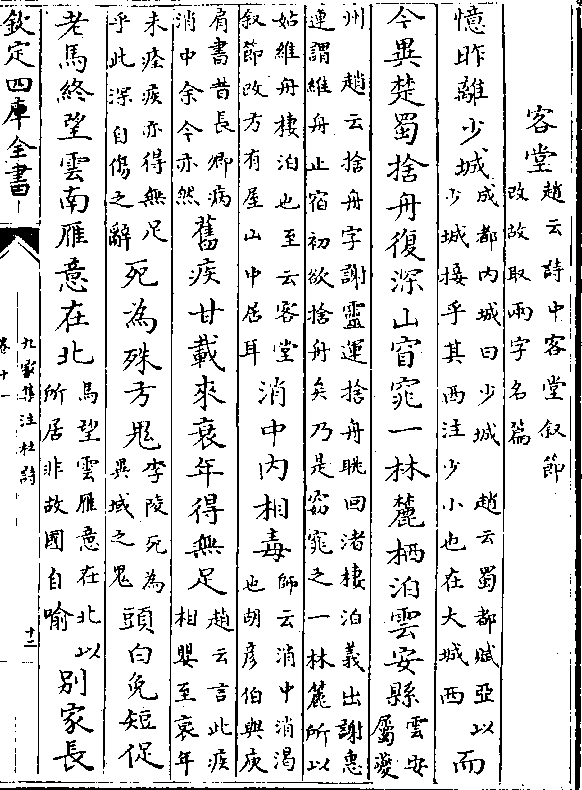 客堂趙云詩中客堂叙節改故取兩字名篇
憶昨離少城成都内城曰少城 趙云蜀都賦亞以少城接乎其西注少小也在大城西而
今異楚蜀捨舟復深山窅窕一林麓栖泊雲安縣雲安屬夔
州 趙云捨舟字謝靈運捨舟眺回渚棲泊義出謝惠
連謂維舟止宿初欲捨舟矣乃是窈窕之一林麓所以
姑維舟棲泊也至云客堂叙節改方有屋山中居耳消中内相毒師云消中消渴也胡彦伯與庾
肩書昔長卿病消中余今亦然舊疾甘載來衰年得無足趙云言此疾相嬰至衰年
未痊疾亦得無足乎此深自傷之辭死為殊方鬼李陵死為異域之鬼頭白免短促
老馬終望雲南雁意在北馬望雲雁意在北以所居非故國自喻别家長
欽定四庫全書
九家集注杜詩
卷十一
十二